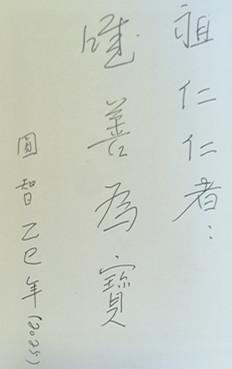 祖仁仁者：
唯善為寶
圓智乙巳年(2025)